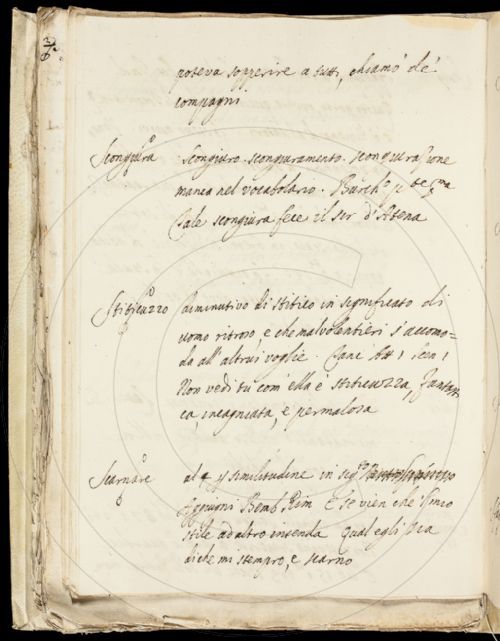 poteva sopperire a tutti, chiamò de'
compagni
Scongiura scongiuro. scongiuramento. scongiurazione
manca nel vocabolario. Burch.
Tale scongiura fece il ser d'Atena
Stitichuzzo diminutivo di stitico in significato di
uomo ritroso, e che malvolentieri s'accomo-
da all'altrui voglie.
Non vedi tu com'ella è stitichuzza, fantasti
ca, incagnata, e permalosa
Scarnare al § per similitudine in sig.
Aggiugni Bemb. Rim. E se vien che'l mio
stile ad altro intenda Qual egli sia
di che mi stempro, e scarno